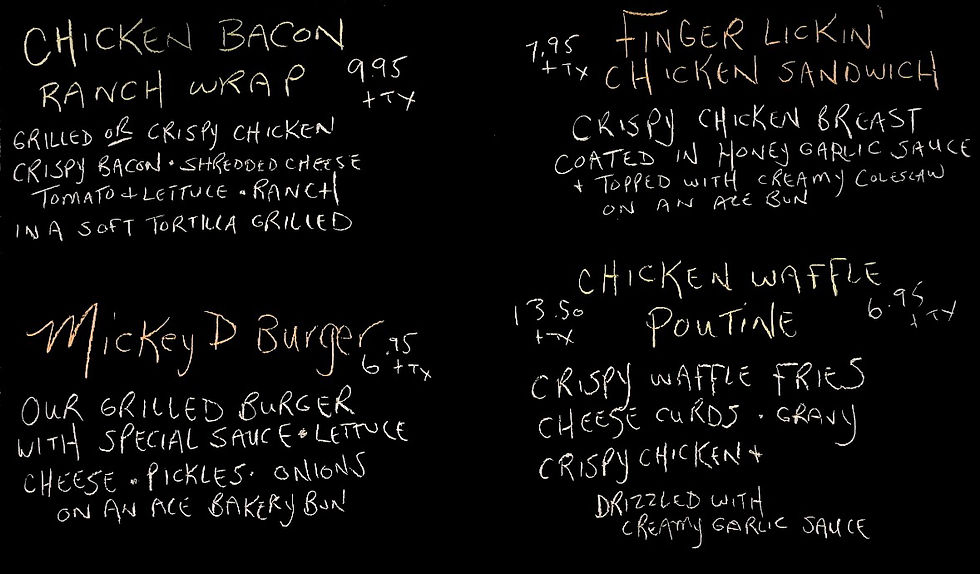 CHICKEN BACON
RANCH WRAP
9.95
+TX
GRILLED OR CRISPY CHICKEN
CRISPY BACON • SHREDDED CHEESE
TOMATO + LETTUCE • RANCH
IN A SOFT TORTILLA GRILLED
FINGER LICKIN'
CHICKEN SANDWICH
7.95
+TX
CRISPY CHICKEN BREAST
COATED IN HONEY GARLIC SAUCE
+ TOPPED WITH CREAMY COLESLAW
ON AN ACE BUN
Mickey D Burger
6.95
+TX
OUR GRILLED BURGER
WITH SPECIAL SAUCE • LETTUCE
CHEESE • PICKLES • ONIONS
ON AN ACE BAKERY BUN
CHICKEN WAFFLE
POUTINE
13.50
+TX
6.95
+TX
CRISPY WAFFLE FRIES
CHEESE CURDS • GRAVY
CRISPY CHICKEN +
DRIZZLED WITH
CREAMY GARLIC SAUCE